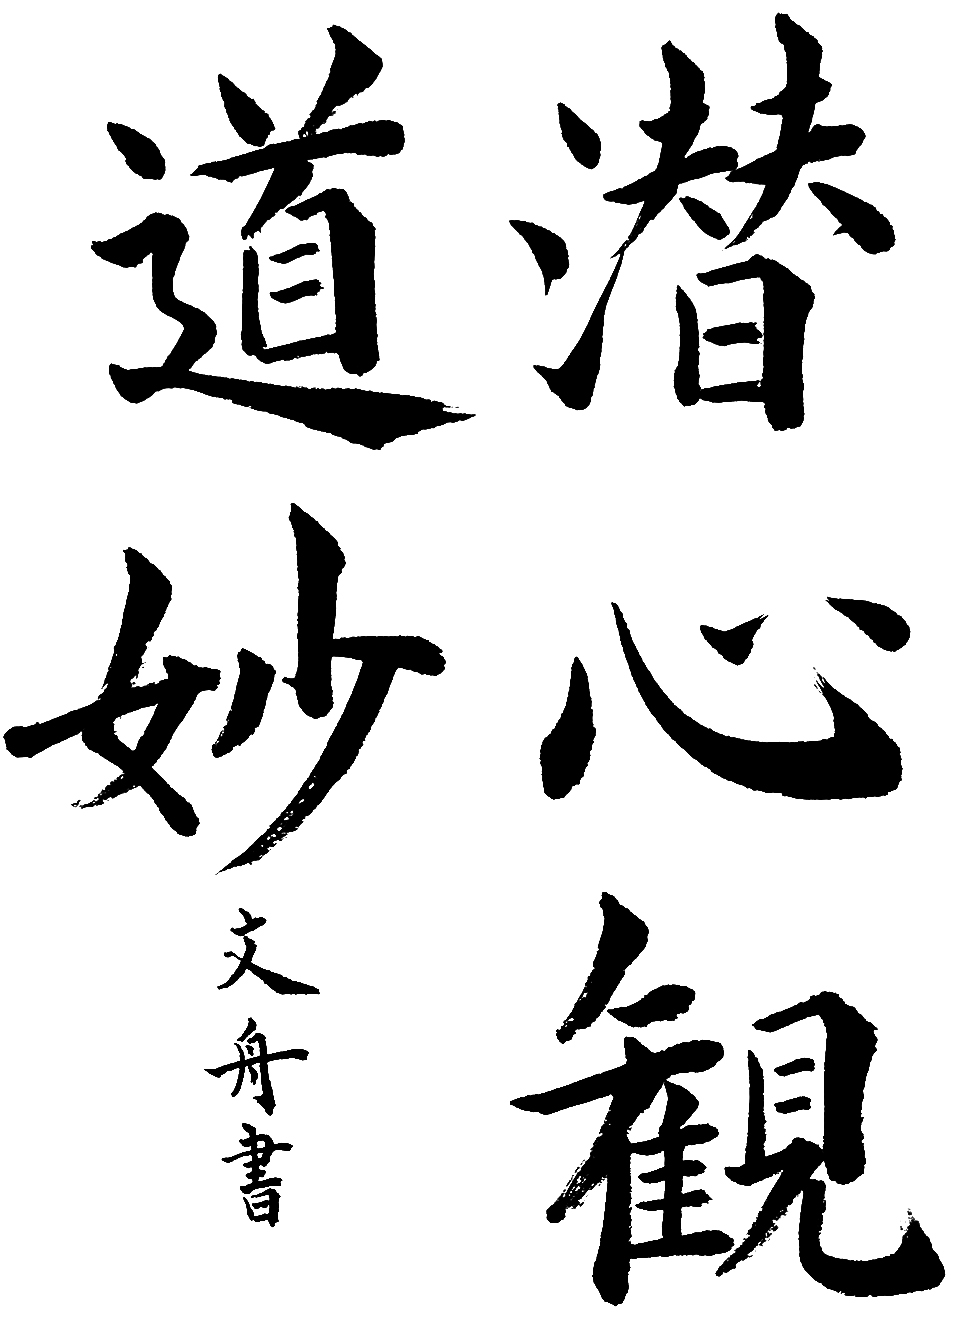 潜心観
道妙
文舟書